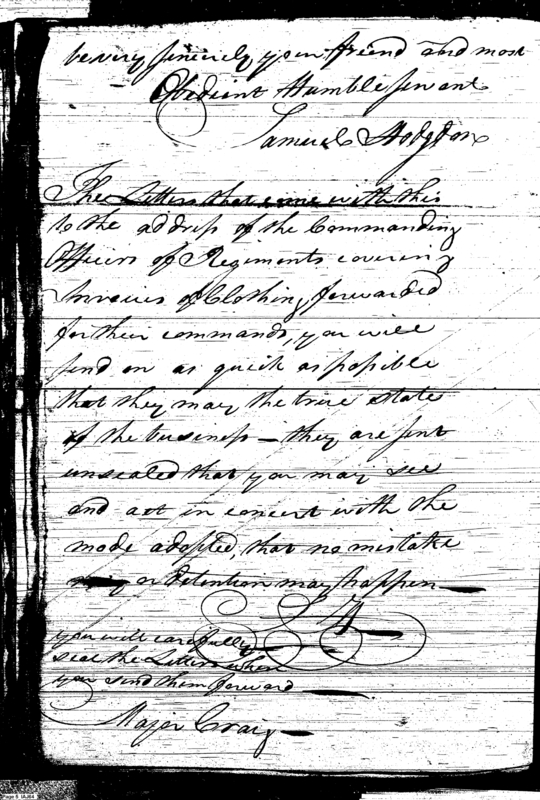 be very sincerely your friend and most
Obedient Humble servant
Samuel Hodgdon
The Letters that come with this
to the address of the Commanding
Officers of Regiments covering
Invoices of Clothing, forwarded
for their commands, you will
send on as quick as possible
that they may the true state
of the business — they are sent
unsealed that you may see
and act in concert with the
mode adopted, that no mistake
or detention may happen —
SH
you will carefully
seal the Letters when
you send them forward —
Major Craig —